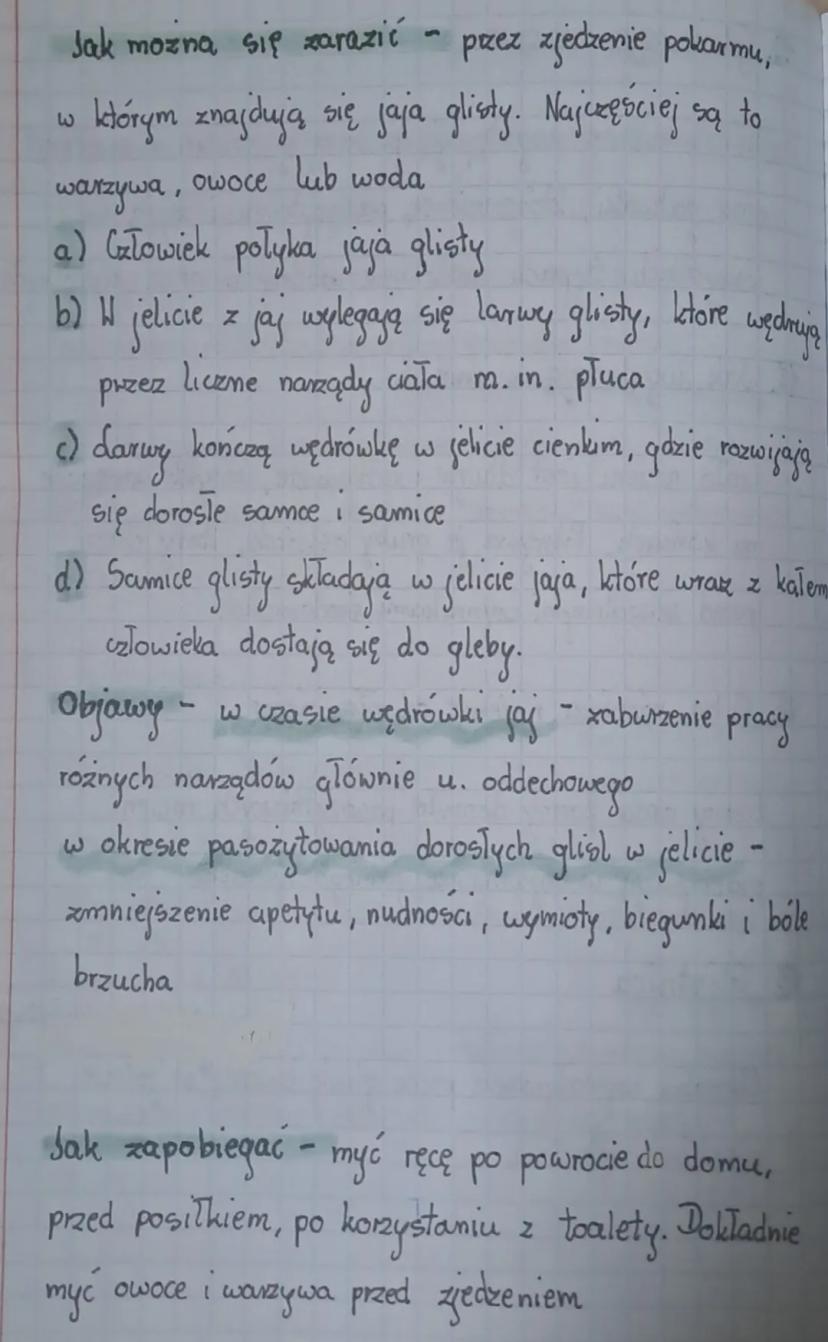 Jak można się zarazić - przez zjedzenie pokarmu,
w którym znajdują się jaja glisty. Najczęściej są to
warzywa, owoce lub woda
a) Człowiek połyka jaja glisty
b) W jelicie z jaj wylegają się larwy glisty, które wędrują
przez liczne narządy ciała m. in. płuca
c) Larwy kończą wędrówkę w jelicie cienkim, gdzie rozwijają
się dorosłe samce i samice
d) Samice glisty składają w jelicie jaja, które wraz z kałem
człowieka dostają się do gleby.
Objawy - w czasie wędrówki jaj - zaburzenie pracy
różnych narządów głównie u. oddechowego
w okresie pasożytowania dorosłych glist w jelicie -
zmniejszenie apetytu, nudności, wymioty, biegunki i bóle
brzucha
Jak zapobiegać - myć ręcę po powrocie do domu,
przed posiłkiem, po korzystaniu z toalety. Dokładnie
myć owoce i warzywa przed zjedzeniem